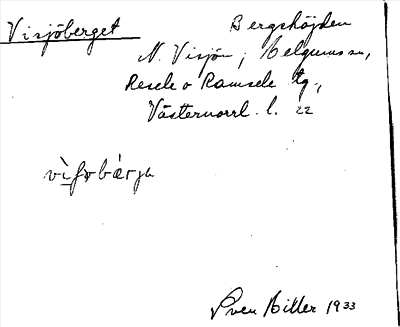 Visjöberget
Bergshöjden
N. Visjön, Helgums sn,
Resele o Ramsele tg.,
Västernorrl. l. 22
vìʃøbær̀jə
Sven Biller 1933